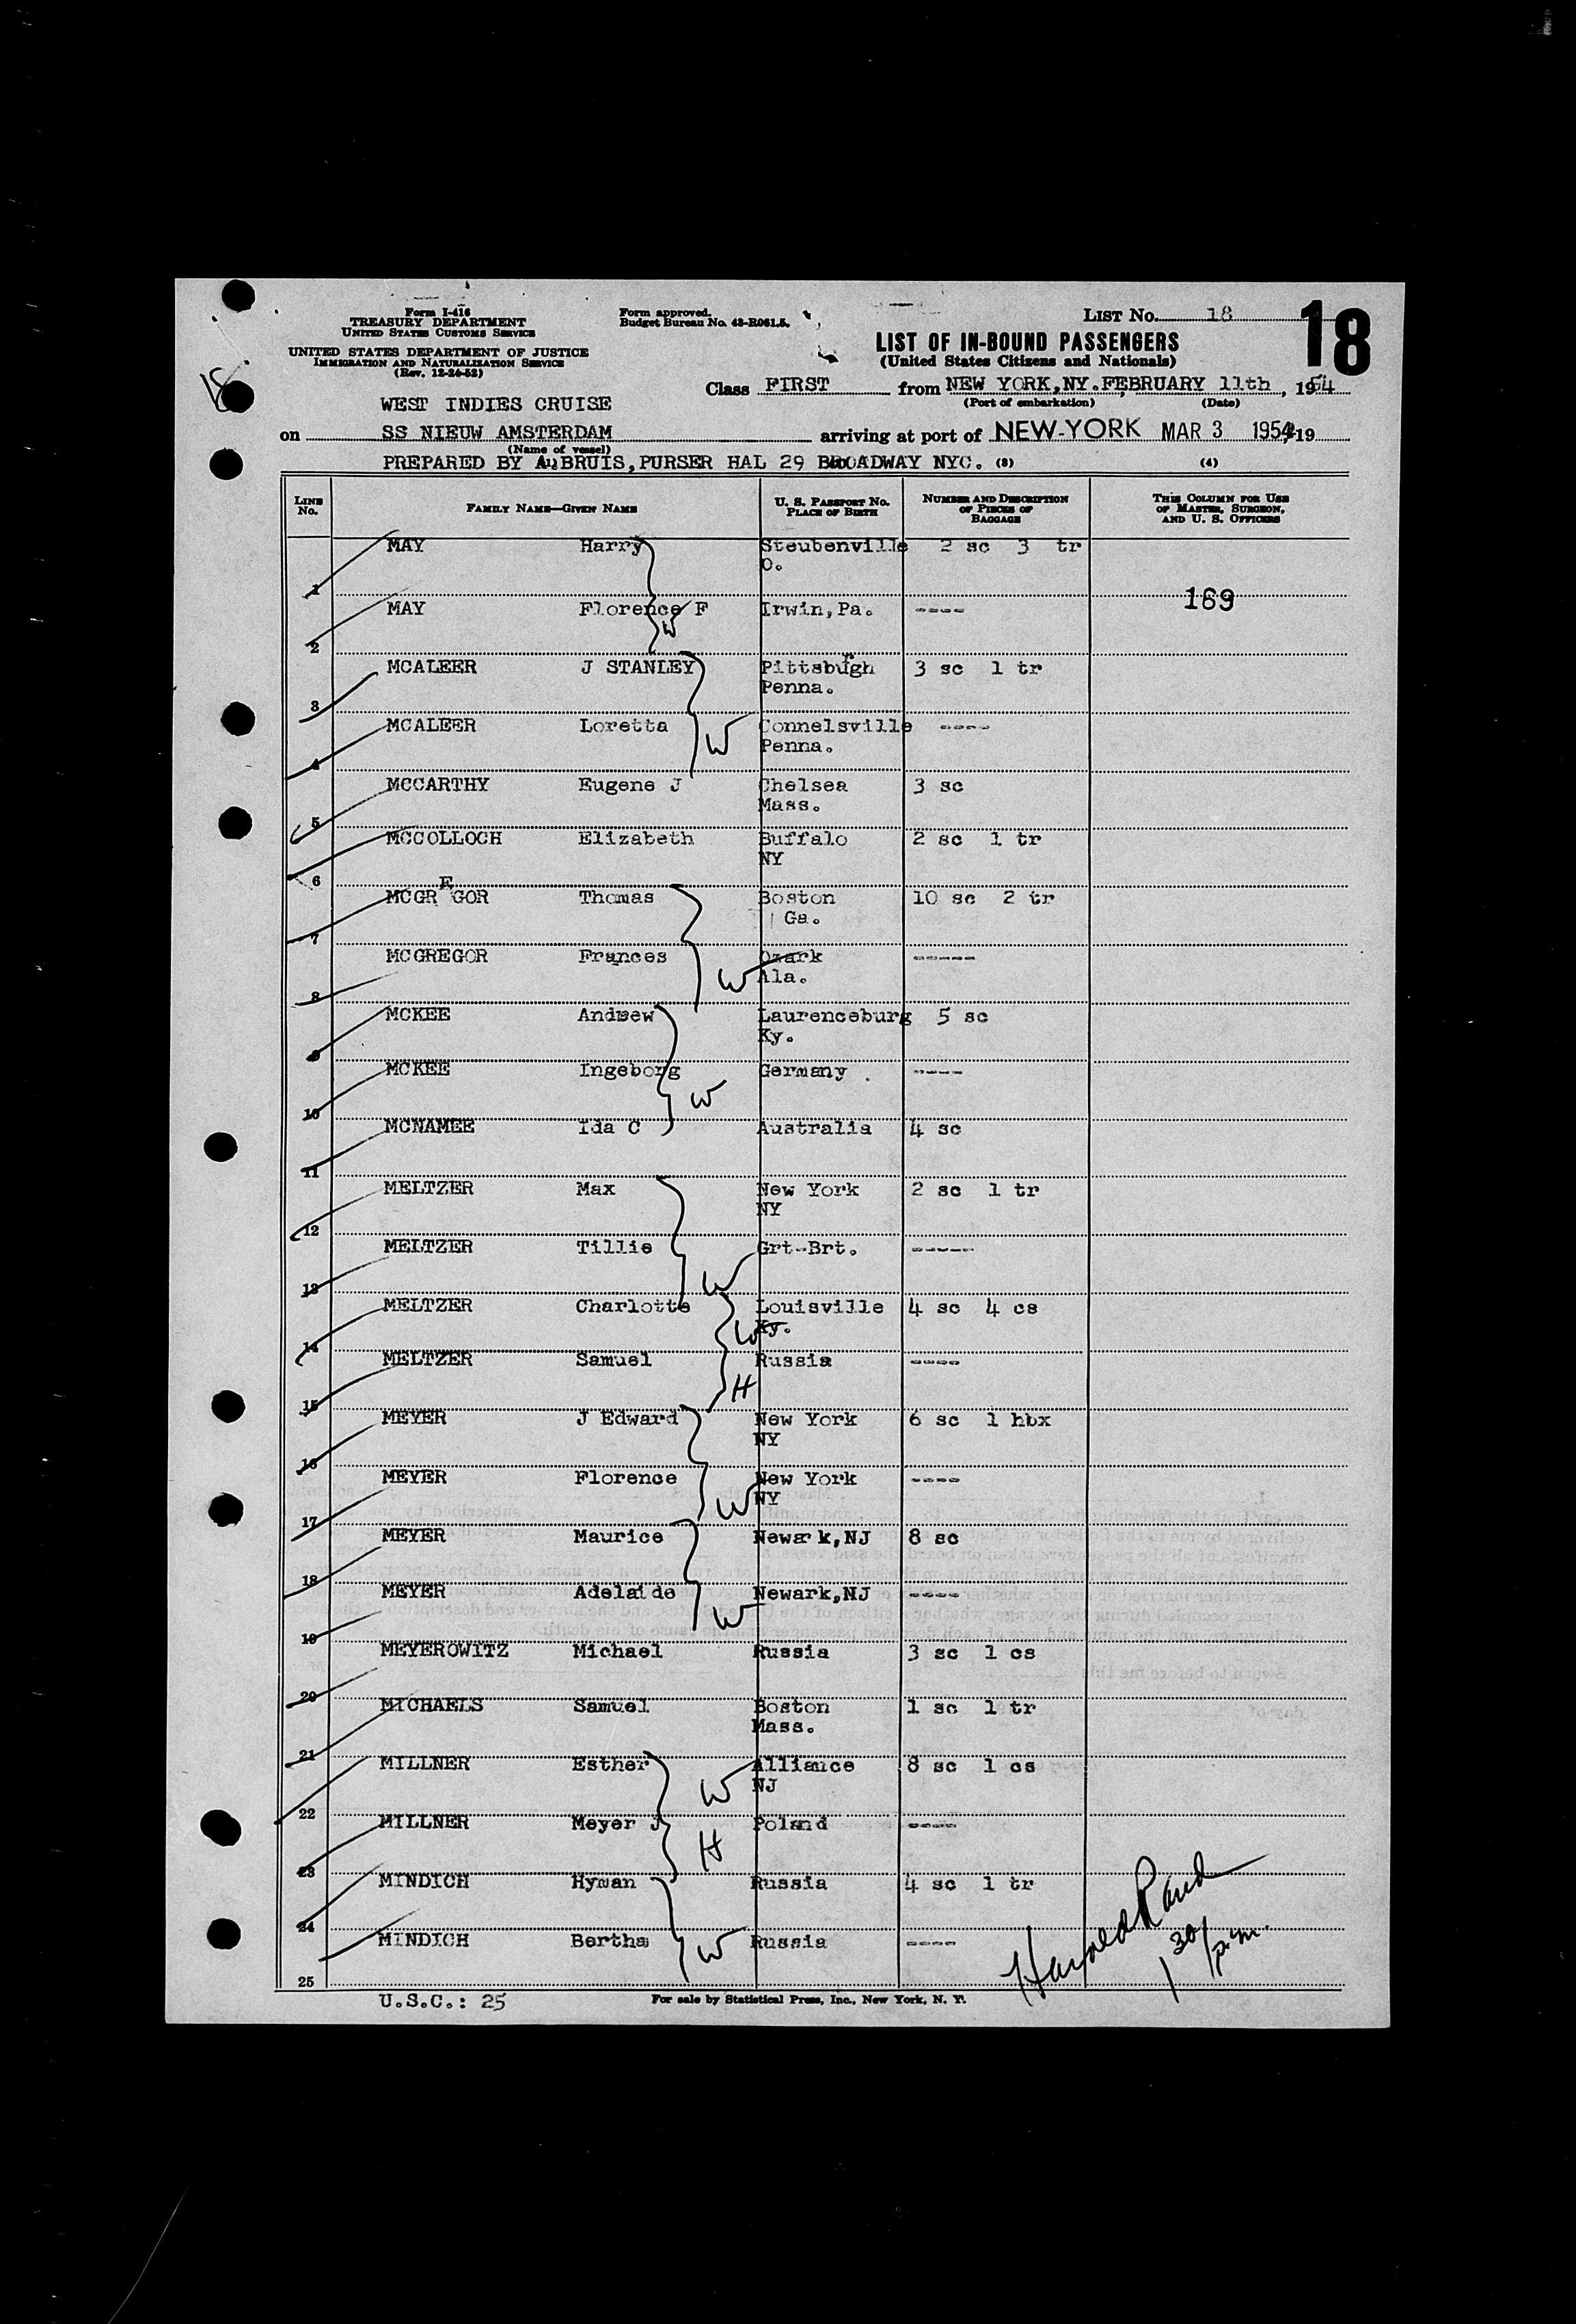 Form I-416
TREASURY DEPARTMENT
UNITED STATES CUSTOMS SERVICE
UNITED STATES DEPARTMENT OF JUSTICE
IMMIGRATION AND NATURALIZATION SERVICE
(Rev. 12-24-52)
Form approved.
Budget Bureau No. 43-R061.5.
LIST No. 18
18
LIST OF IN-BOUND PASSENGERS
(United States Citizens and Nationals)
18
Class FIRST from NEW YORK,NY.FEBRUARY 11th, 1954
(Port of embarkation) (Date)
WEST INDIES CRUISE
on SS NIEUW AMSTERDAM arriving at port of NEW-YORK MAR 3 1954 19
(Name of vessel)
PREPARED BY A. BRUIS, PURSER HAL 29 BROADWAY NYC. (3) (4)
LINE No. FAMILY NAME—GIVEN NAME U. S. PASSPORT No. PLACE OF BIRTH NUMBER AND DESCRIPTION OF PIECES OF BAGGAGE THIS COLUMN FOR USE OF MASTER, SURGEON, AND U. S. OFFICERS
1 MAY Harry Steubenville O. 2 sc 3 tr
169
2 MAY Florence F W Irwin,Pa. ----
3 MCALEER J STANLEY Pittsbugh r Penna. 3 sc 1 tr
4 MCALEER Loretta W Connelsville Penna. ----
5 MCCARTHY Eugene J Chelsea Mass. 3 sc
6 MCCOLLOCH Elizabeth Buffalo NY 2 sc 1 tr
7 MCGREGOR Thomas Boston Ga. 10 sc 2 tr
8 MCGREGOR Frances W Ozark Ala. -----
9 MCKEE Andrew Laurenceburg Ky. 5 sc
10 MCKEE Ingeborg W Germany ----
11 MCNAMEE Ida C Australia 4 sc
12 MELTZER Max New York NY 2 sc 1 tr
13 MELTZER Tillie W Grt-Brt. -----
14 MELTZER Charlotte W Louisville Ky. 4 sc 4 cs
15 MELTZER Samuel H Russia ----
16 MEYER J Edward New York NY 6 sc 1 hbx
17 MEYER Florence W New York NY ----
18 MEYER Maurice Newark,NJ 8 sc
19 MEYER Adelaide W Newark,NJ ----
20 MEYEROWITZ Michael Russia 3 sc 1 cs
21 MICHAELS Samuel Boston Mass. 1 sc 1 tr
22 MILLNER Esther W Alliance NJ 8 sc 1 cs
23 MILLNER Meyer J H Poland ----
24 MINDICH Hyman Russia 4 sc 1 tr
25 MINDICH Bertha W Russia ----
Harold Rand
1 30/p.m.
U.S.C.: 25
For sale by Statistical Press, Inc., New York, N. Y.